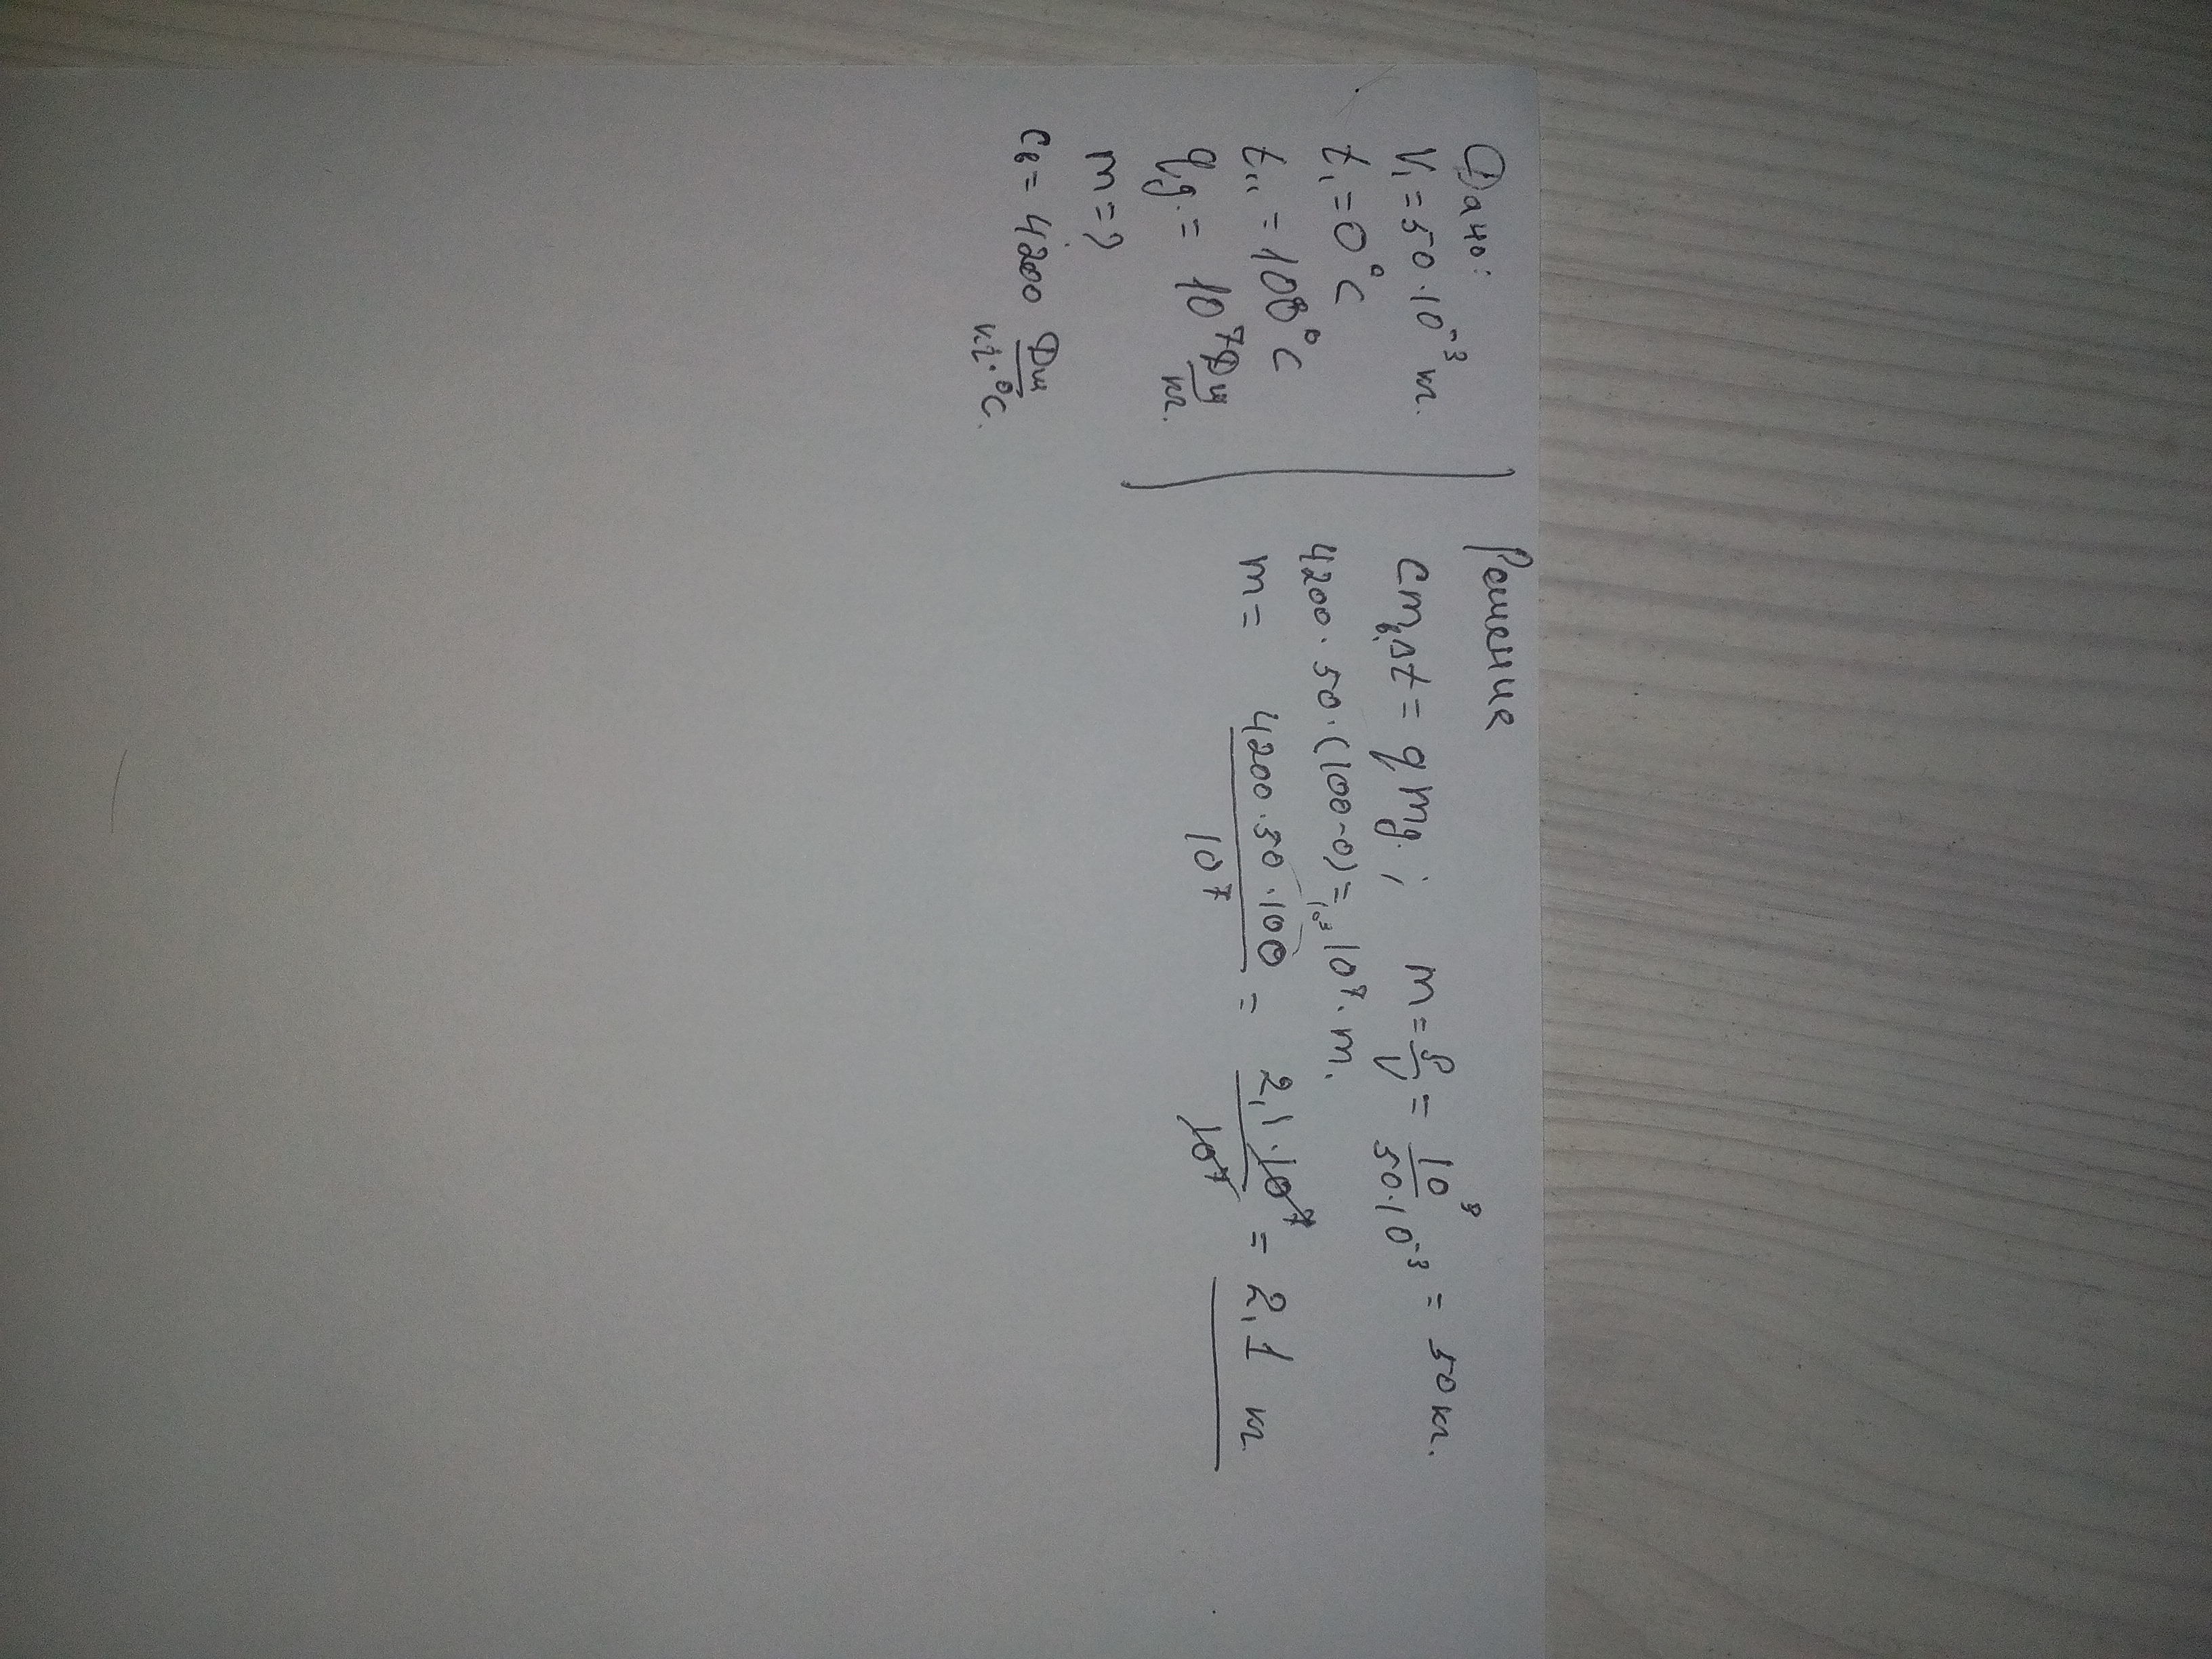 Дано:
V₁ = 50 · 10⁻³ кг.
t₁ = 0°C
t₁₁ = 100°C
qд. = 10⁷ Дж/кг.
m = ?
cв = 4200 Дж/кг·°C.
Решение
cmвΔt = qmд. ; m = ρ/V = 10³/50·10⁻³ = 50 кг.
4200 · 50 · (100-0) = 10⁷ · m.
m = 4200·50·100/10⁷ = 2,1·10⁷/10⁷ = 2,1 кг